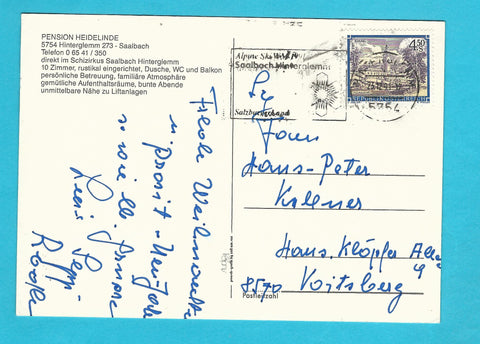 PENSION HEIDELINDE
5754 Hinterglemm 273 - Saalbach
Telefon 0 65 41 / 350
direkt im Schizirkus Saalbach Hinterglemm
10 Zimmer, rustikal eingerichtet, Dusche, WC und Balkon
persönliche Betreuung, familiäre Atmosphäre
gemütliche Aufenthaltsräume, bunte Abende
unmittelbare Nähe zu Liftanlagen
Frohe Weihnachten
u. Prosit-Neujahr
sowie lb. Grüsse
Alpine Ski
Saalbach Hinterglemm
Salzburgerland
4.50
REPUBLIK ÖSTERREICH
5754
Hans-Peter
Hans Klöpfer
8570 Voitsberg
Postleitzahl